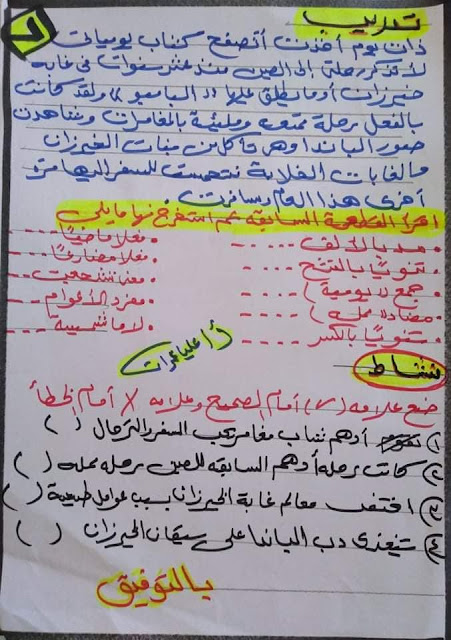 تدريب
٧
ذات يوم أخذت أتصفح كتاب يومياتى
لأتذكر رحلتى إلى الصين منذ عشر سنوات فى غابة
خيزران أو ما نطلق عليها (( البامبو )) ولقد كانت
بالفعل رحلة ممتعة ومليئة بالمغامرات وشاهدت
صور الباندا وهى تأكل من نبات الخيزران
والغابات الخلابة تحمست للسفر إليها مرة
أخرى هذا العام وسافرت.
اقرأ القطعة السابقة ثم استخرج منها ما يلى
• مد بالألف ----- • فعلا ماضيًا -----
• تنوينًا بالفتح ----- • فعلا مضارعًا -----
• جمع (( يومية )) ----- • معنى شجعت -----
• مضاد (( مملة )) ----- • مفرد الأعوام -----
• تنوينًا بالكسر ----- • لاما شمسية -----
أ / علياء عرفات
نشاط
ضع علامة (✓) أمام الصحيح وعلامة X أمام الخطأ
١) أدهم شاب مغامر يحب السفر والترحال ( )
٢) كانت رحلة أدهم السابقة للصين رحلة مملة ( )
٣) اختفت معالم غابة الخيزران بسبب عوامل طبيعية ( )
٤) يتغذى دب الباندا على سيقان الخيزران ( )
بالتوفيق